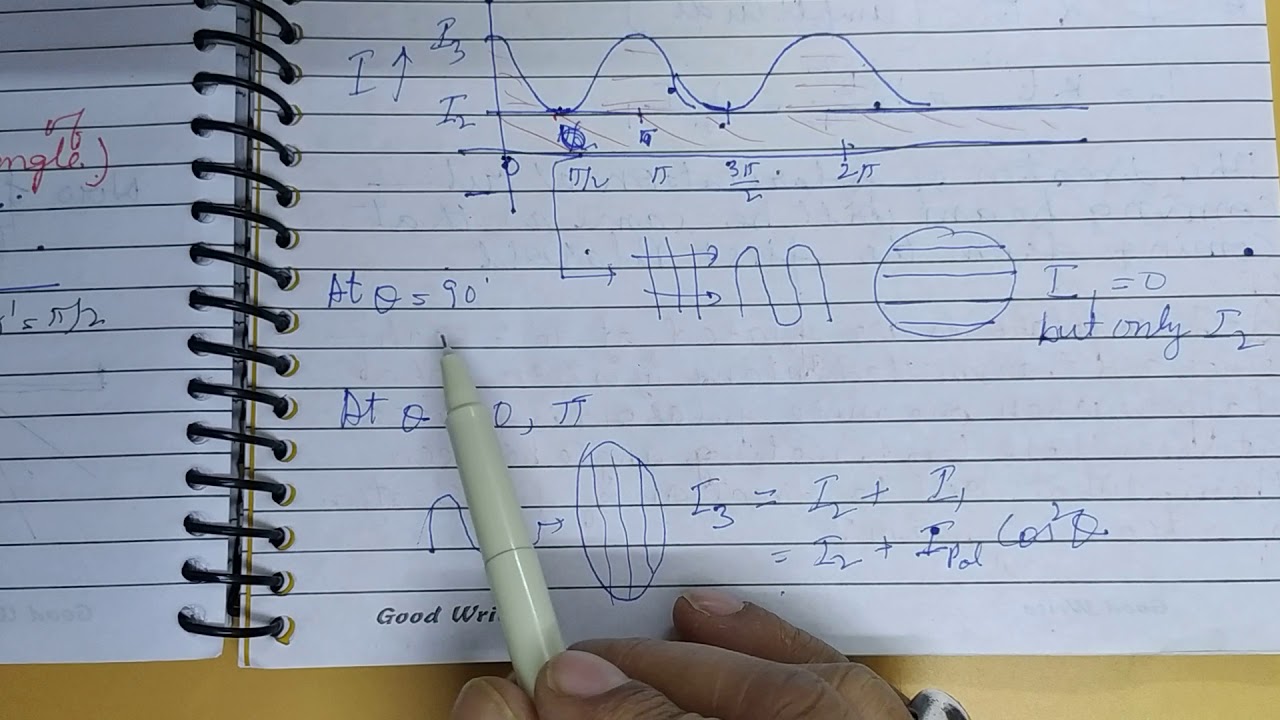 of
ngle.)
' = π/2
I ↑ I3
I2
0 π/2 π 3π/2 2π
At θ = 90°
I1 = 0
but only I2
At θ 0, π
I3 = I2 + I1
= I2 + IPol Cos²θ
Good Wri